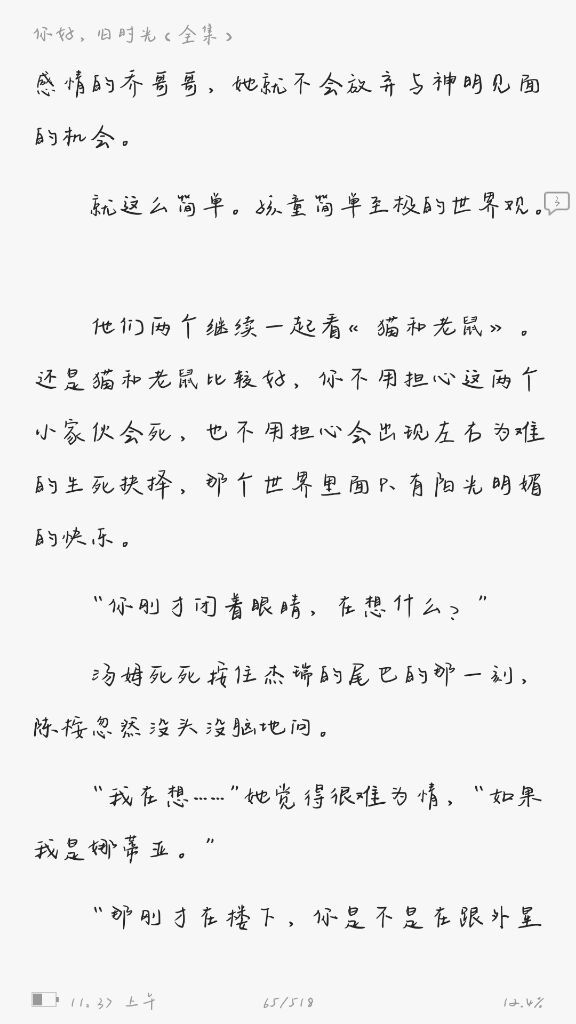 你好，旧时光（全集）
感情的乔哥哥，她就不会放弃与神明见面
的机会。
就这么简单。孩童简单至极的世界观。
3
他们两个继续一起看《猫和老鼠》。
还是猫和老鼠比较好，你不用担心这两个
小家伙会死，也不用担心会出现左右为难
的生死抉择，那个世界里面只有阳光明媚
的快乐。
“你刚才闭着眼睛，在想什么？”
汤姆死死按住杰瑞的尾巴的那一刻，
陈桉忽然没头没脑地问。
“我在想……”她觉得很难为情，“如果
我是娜蒂亚。”
“那刚才在楼下，你是不是在跟外星
11:37 上午
65/518
12.4%